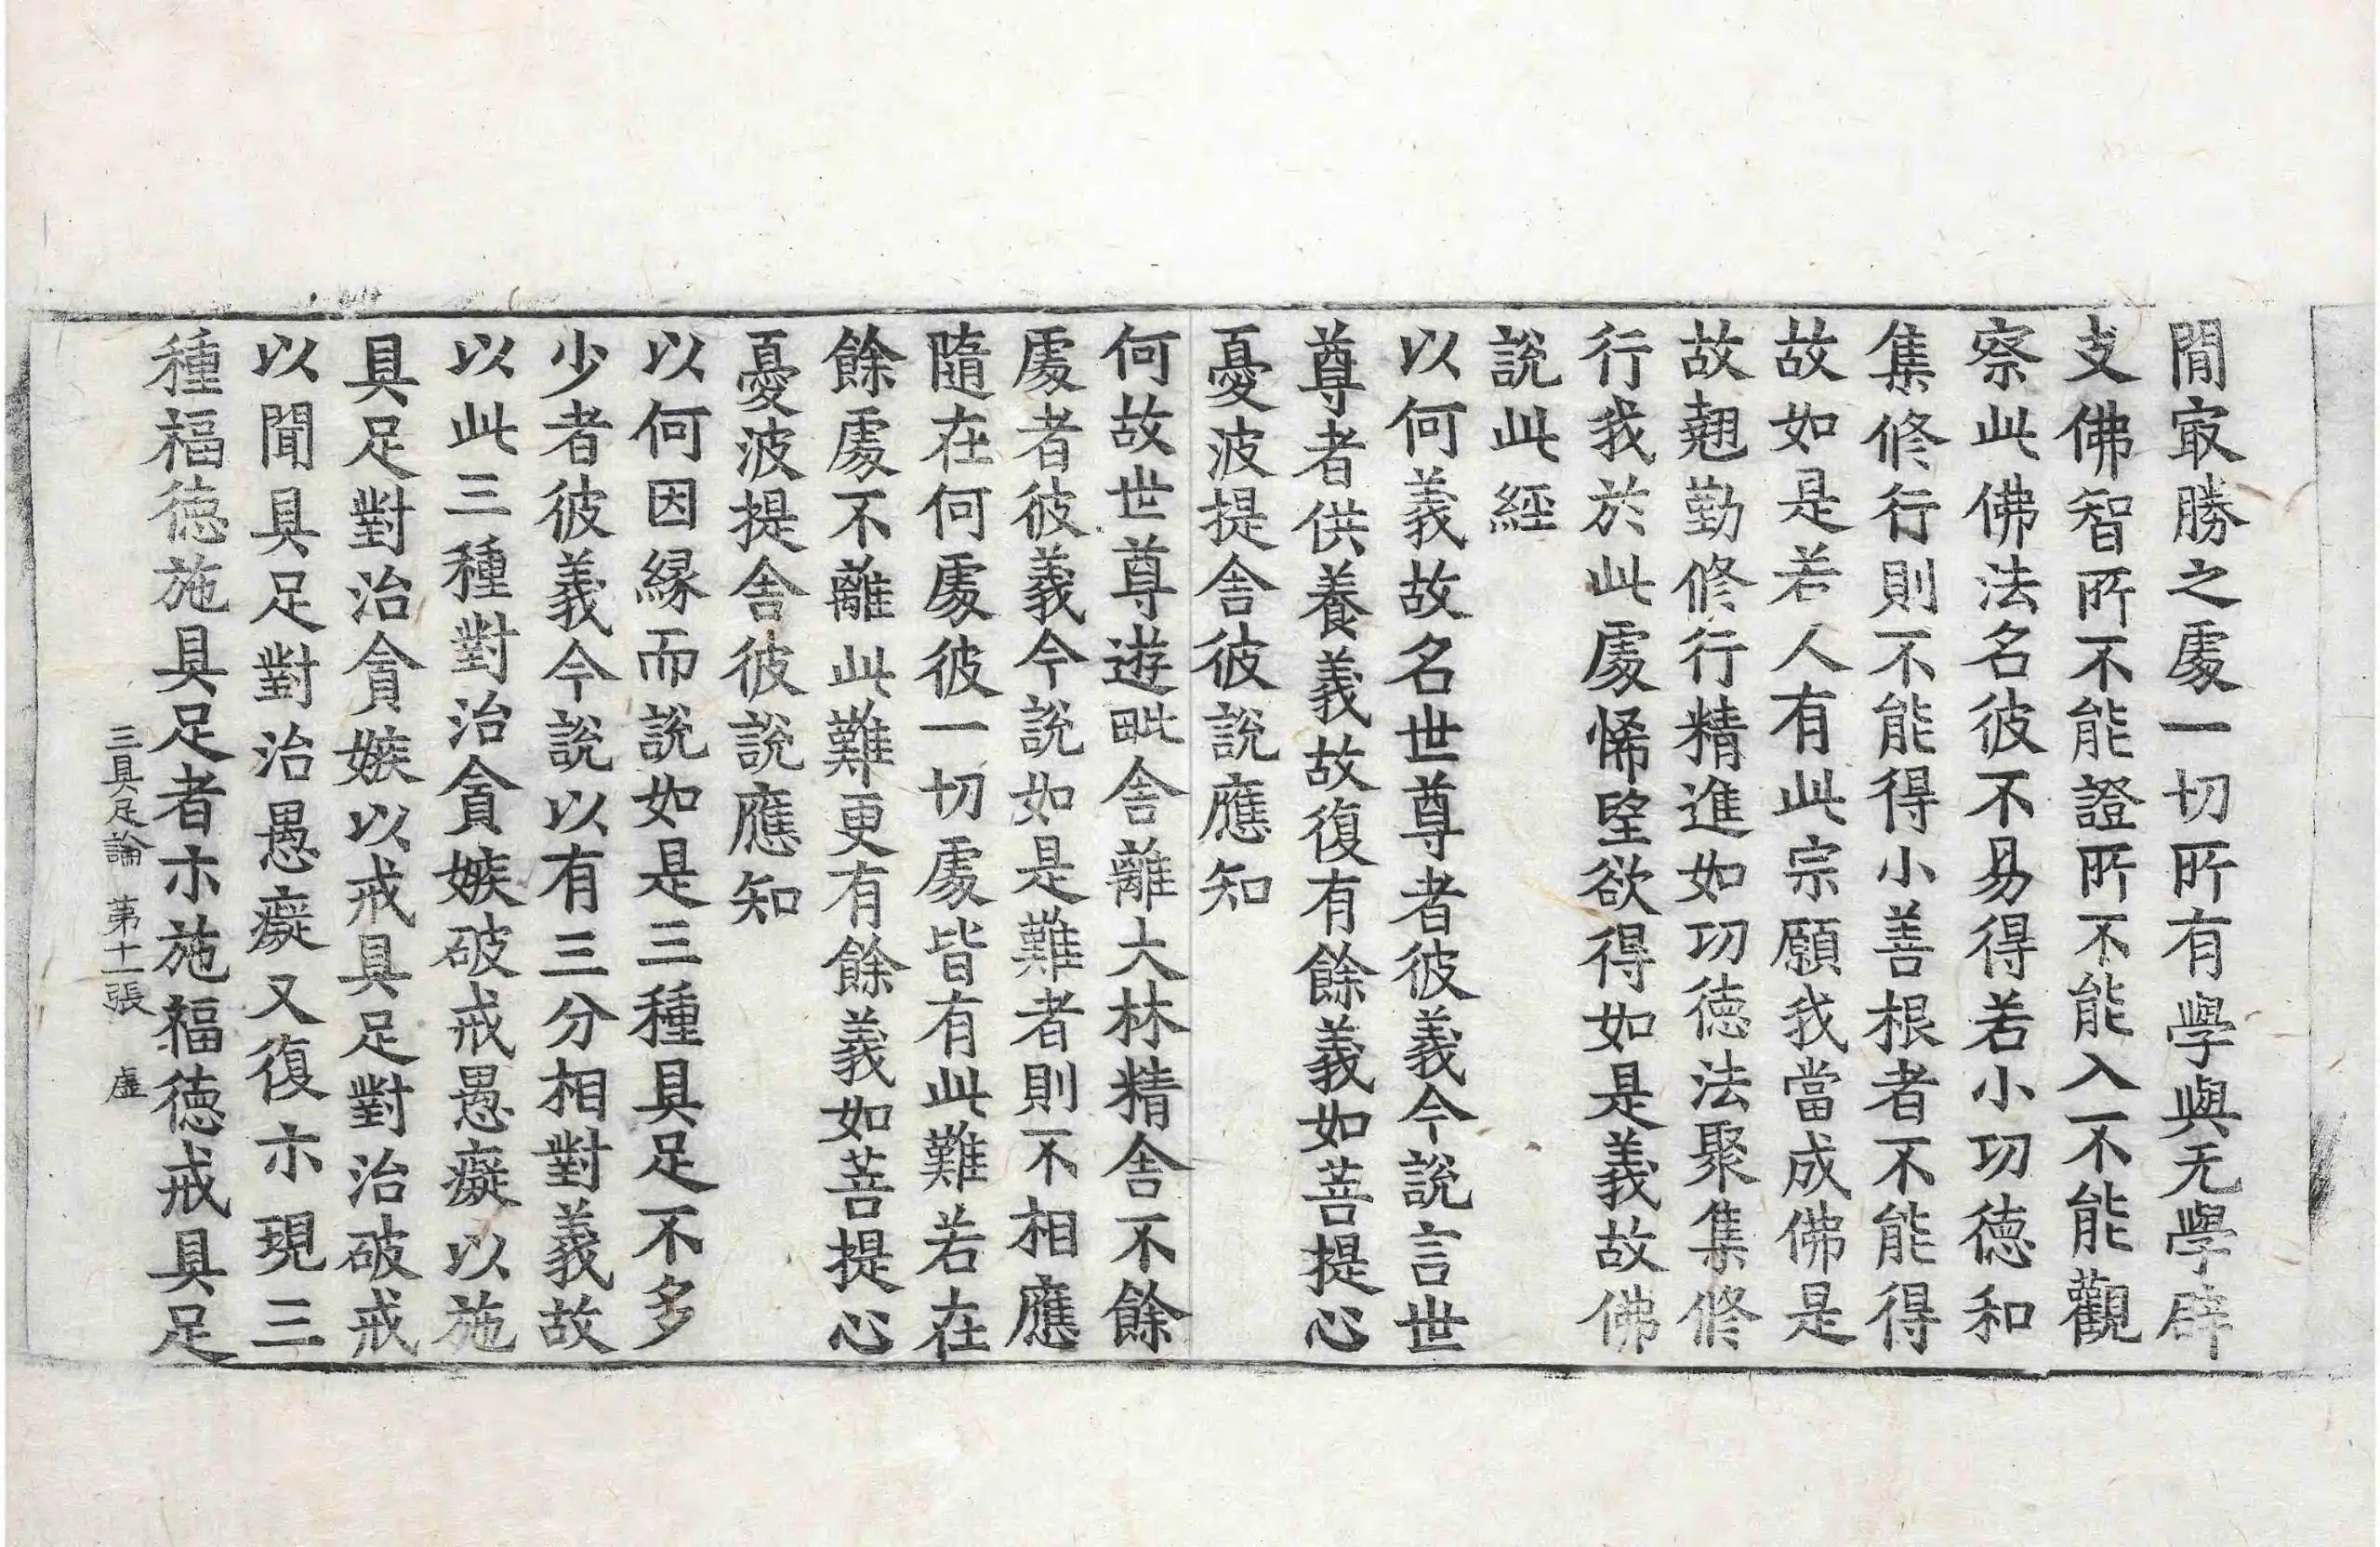 間㝡勝之處一切所有學與无學辟
支佛智所不能證所不能入不能觀
察此佛法名彼不易得若小功德和
集修行則不能得小善根者不能得
故如是若人有此宗願我當成佛是
故翹勤修行精進如功德法聚集修
行我於此處悕望欲得如是義故佛
說此經
以何義故名世尊者彼義今說言世
尊者供養義故復有餘義如菩提心
憂波提舍彼說應知
何故世尊遊毗舍離大林精舍不餘
處者彼義今說如是難者則不相應
隨在何處彼一切處皆有此難若在
餘處不離此難更有餘義如菩提心
憂波提舍彼說應知
以何因緣而說如是三種具足不多
少者彼義今說以有三分相對義故
以此三種對治貪嫉破戒愚癡以施
具足對治貪嫉以戒具足對治破戒
以聞具足對治愚癡又復示現三
種福德施具足者示施福德戒具足
三具足論 第十一張 虛